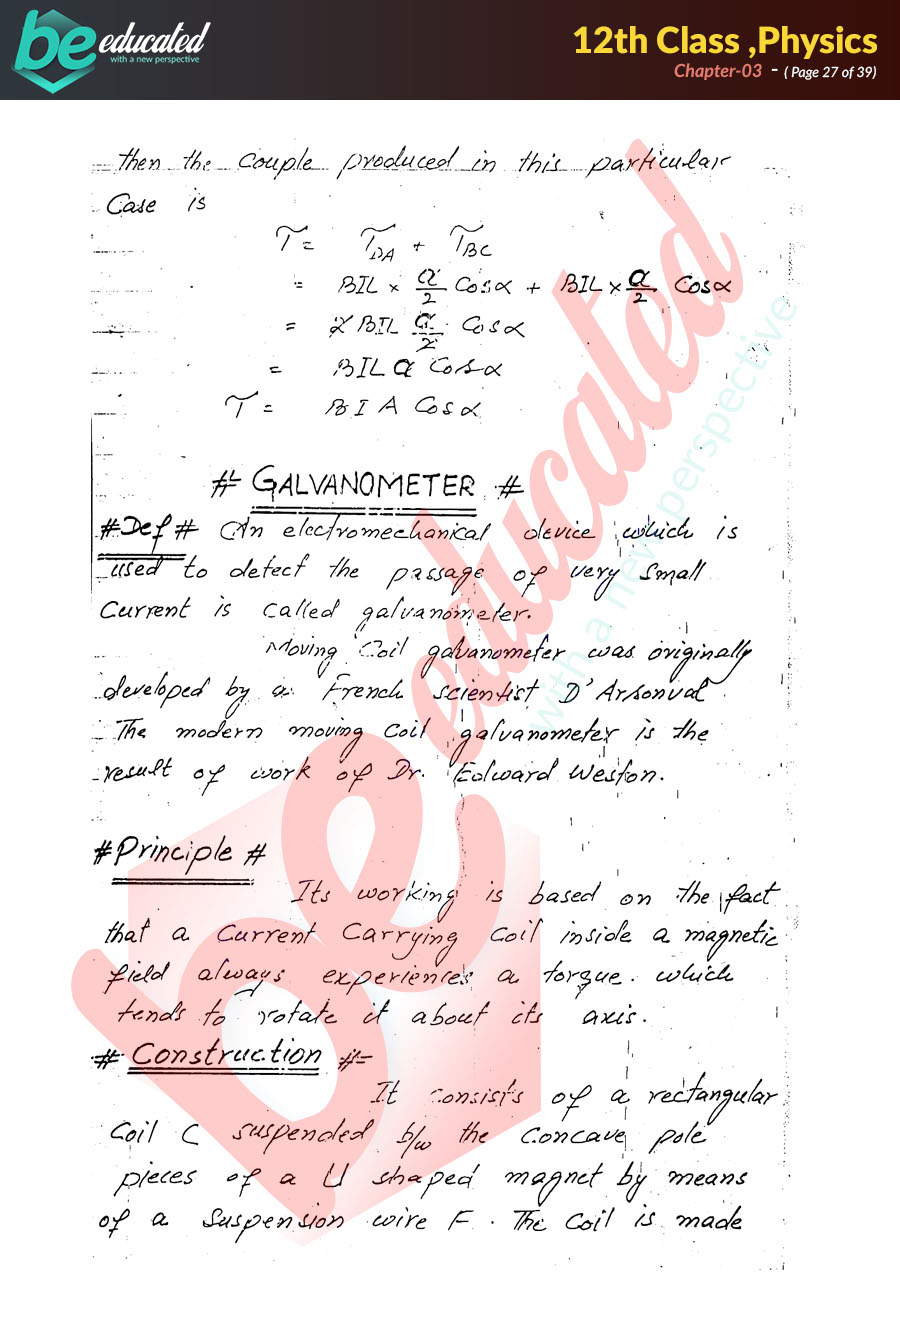 be educated
with a new perspective
12th Class ,Physics
Chapter-03 - ( Page 27 of 39)
then the Couple produced in this particular
Case is
τ = τDA + τBC
= BIL × a/2 Cosα + BIL × a/2 Cosα
= 2 BIL a/2 Cosα
= BIL a Cosα
τ = BIA Cosα
# GALVANOMETER #
# Def # An electromechanical device which is
used to detect the passage of very small
Current is called galvanometer.
Moving Coil galvanometer was originally
developed by a French scientist D'Arsonval.
The modern moving coil galvanometer is the
result of work of Dr. Edward Weston.
# Principle #
Its working is based on the fact
that a Current Carrying Coil inside a magnetic
field always experiences a torque. which
tends to rotate it about its axis.
# Construction #-
It consists of a rectangular
Coil C suspended b/w the Concave pole
pieces of a U shaped magnet by means
of a Suspension wire F. The Coil is made
be educated
with a new perspective